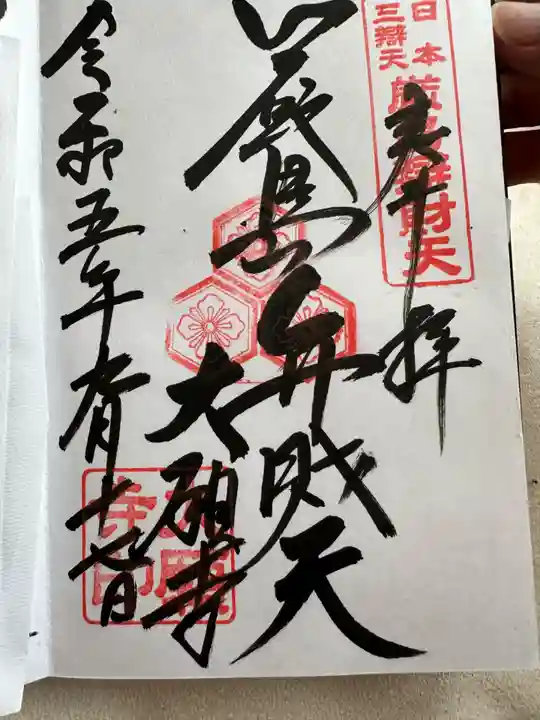 日本
三辯天
厳島辯財天
奉拝
厳島弁財天
大願寺
大願
寺印
令和五年